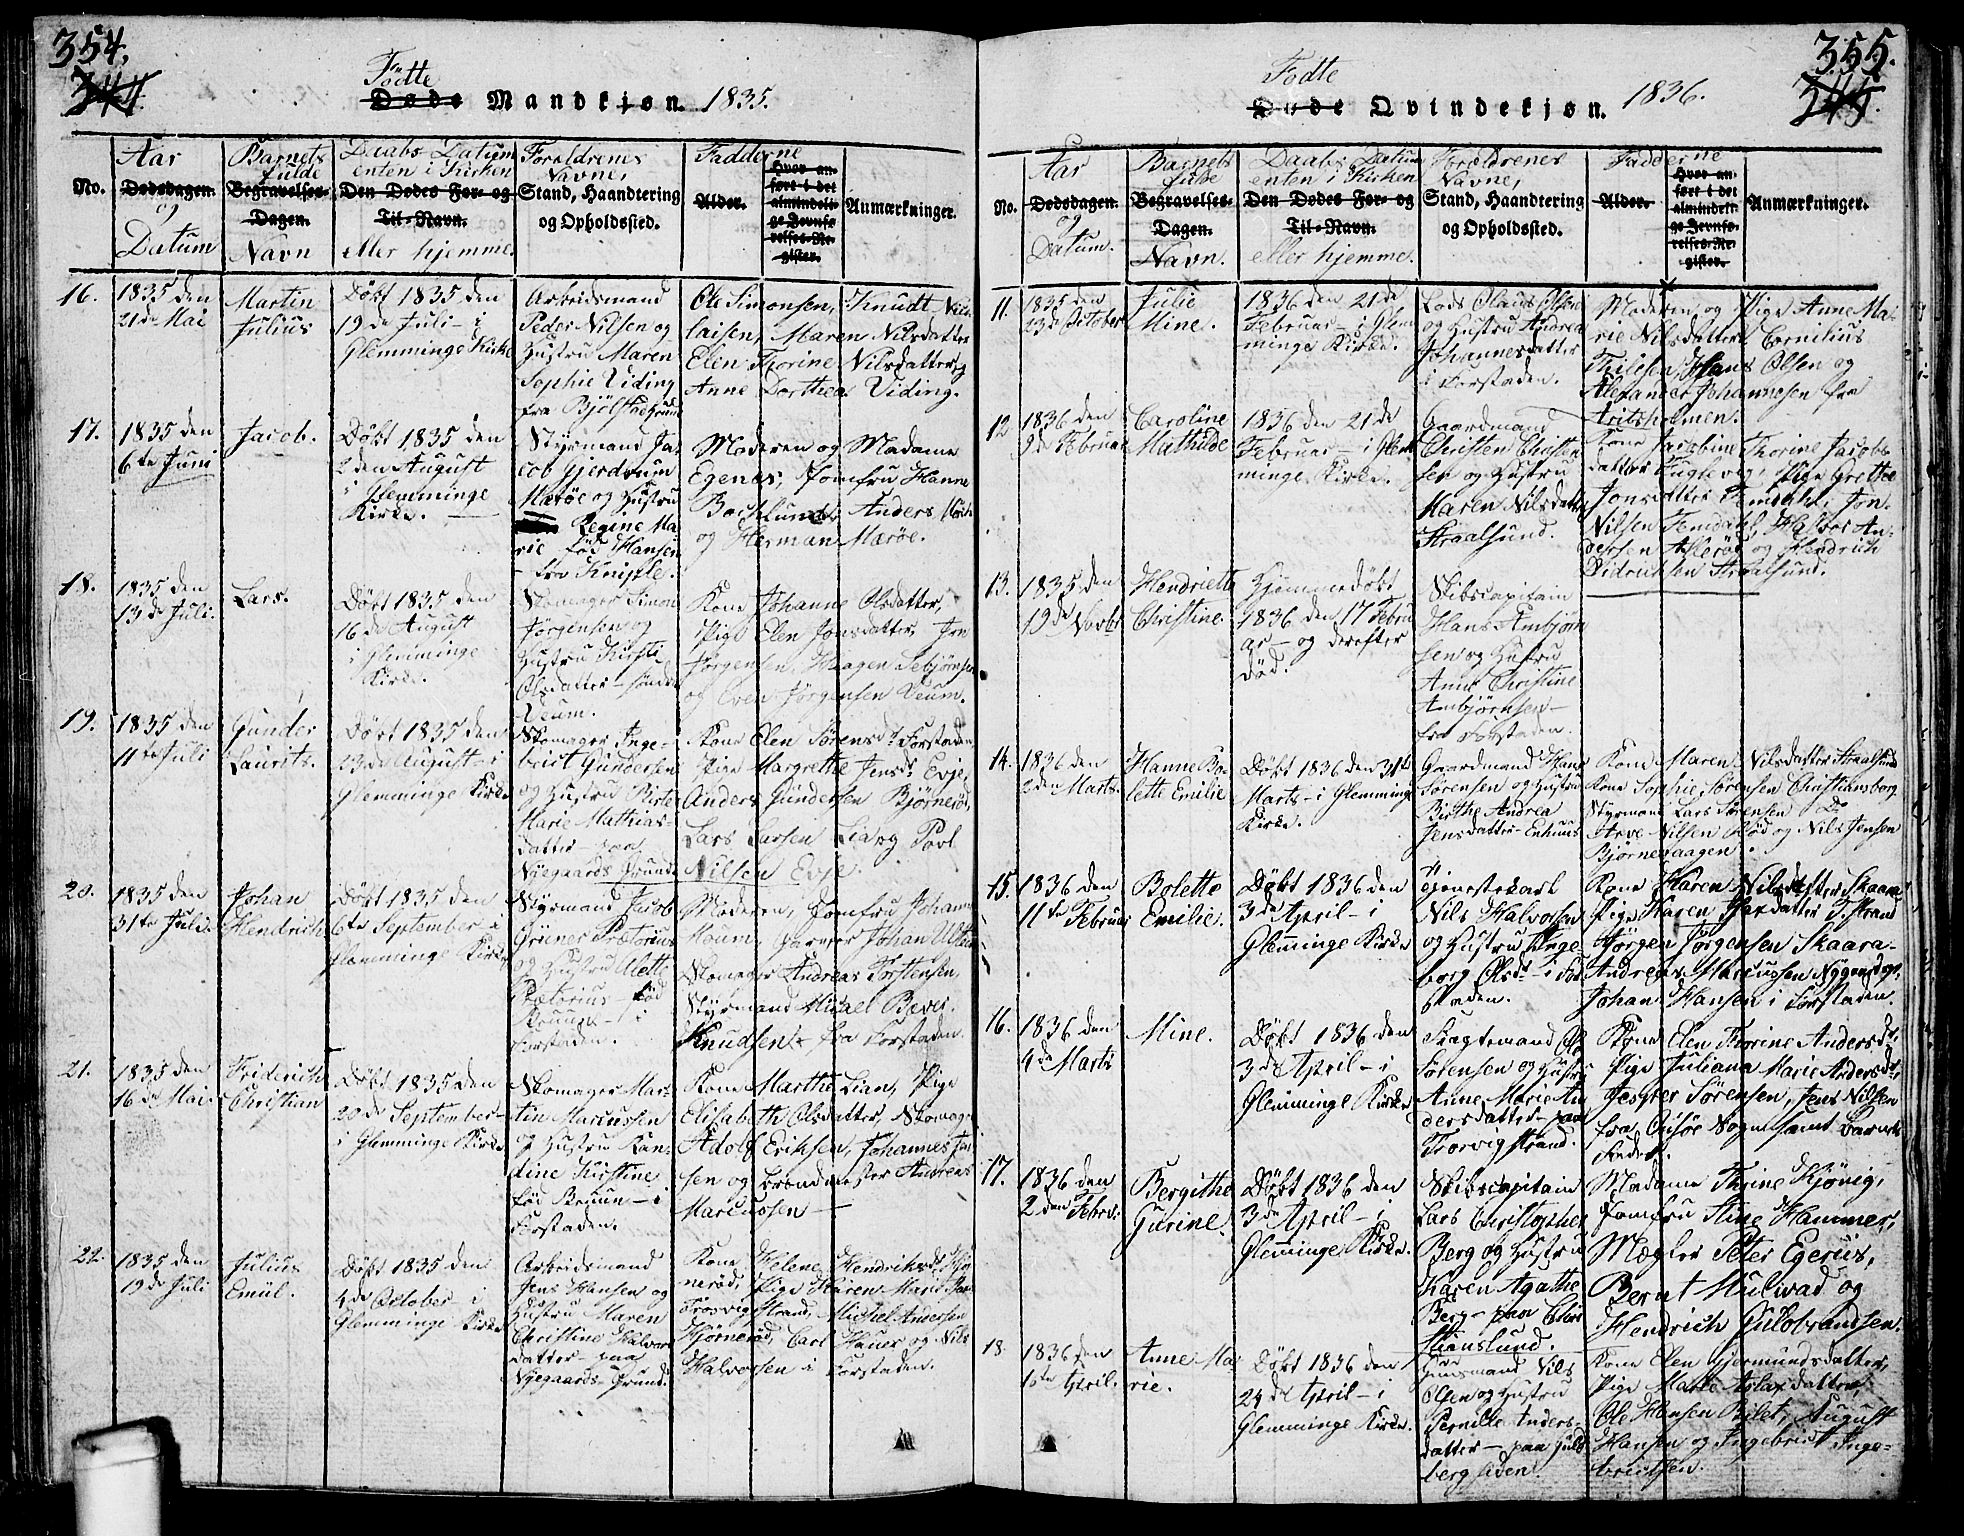 354.
344
Födte
Døde Mandkjøn. 1835.
No.
Aar
Dødsdagen.
og
Datum
Barnets
fulde
Begravelses-
Dagen.
Navn
Daabs Datum
enten i Kirken
Den Dødes For- og
Til-Navn.
eller hjemme.
Forældrenes
Navne,
Stand, Haandtering
og Opholdssted.
Fadderne
Alder.
Hvor an-
ført i det
almindeli-
ge Jevnfø-
relses-Re-
gister.
Anmærkninger.
16.
1835 den
21de Mai
Martin
Julius
Døbt 1835 den
19de Juli - i
Glemminge Kirke
Arbeidsmand
Peder Nilsen og
Hustru Maren
Sophie Viding
fra Bjølstad Grund
Ole Simonsen, Knudt Nico-
laisen, Maren Nilsdatter
Elen Thorine Nilsdatter, og
Anne Dorthea Viding.
17.
1835 den
6te Juni
Jacob.
Døbt 1835 den
2den August
i Glemminge
Kirke.
Styrmand Ja-
cob Gjerdrum
Marøe og Hustru
Regine Ma-
rie fød Hansen
- fra Knipple.
Moderen og Madame
Egenes, Jomfru Hanne
Bachlund, Anders
og Herman Marøe.
18.
1835 den
13de Juli.
Lars.
Døbt 1835 den
16de August
i Glemminge
Kirke.
Skomager Simon
Jørgensen og
Hustru Kirsti
Olsdatter - søndre
Veum.
Kone Johanne Olsdatter,
Pige Elen Jonsdatter, Jon
Jørgensen, Haagen Sebjørnsen
og Even Jørgensen Veum.
19.
1835 den
11te Juli
Gunder
Laurits.
Døbt 1835 den
23de August - i
Glemminge Kirke
Skomager Inge-
brict Gundersen
og Hustru Birte
Marie Mathias-
datter - paa
Nygaards Grund.
Kone Elen Sørensdr. Forstaden,
Pige Margrethe Jensdr. Evje,
Anders Gundersen Bjørnerød,
Lars Larsen Lia og Povl
Nilsen Evje.
20.
1835 den
31te Juli.
Johan
Hendrich
Døbt 1835 den
6te September - i
Glemminge Kirke
Styrmand Jacob
Grüner Prætorius
og Hustru Alette
Prætorius - fød
Bruun - i
Forstaden.
Moderen, Jomfru Johanne
Houm, Farver Johan
Skomager Andreas Torstensen,
Styrmand Micael Bever.
Knudsen - fra Forstaden.
21.
1835 den
16de Mai.
Friderich
Christian
Døbt 1835 den
20de September -
i Glemminge Kirke
Skomager Mar-
tin Marcussen
og Hustru Kan-
dine Kirstine
fød Bruun - i
Forstaden.
Kone Marthe Lian, Pige
Elisabeth Olsdatter, Skomager
Adolf Eriksen, Johannes Jan-
sen og Brandmester Andreas
Marcussen -
22.
1835 den
19de Juli
Julius
Emül.
Døbt 1835 den
4de October - i
Glemminge Kirke
Arbeidsmand
Jens Hansen og
Hustru Maren
Christine Halvors-
datter - paa
Nyegaards Grund.
Kone Helene Hendriksdr. Kjør-
nerød, Pige Karen Marie
Trosvig Strand, Michel Andersen
Kjørnerød, Carl Hauer og Nils
Halvorsen i Forstaden.
355.
345.
Födte
Døde Qvindekjøn. 1836.
No.
Aar
Dødsdagen.
og
Datum.
Barnets
fulde
Begravelses-
Dagen.
Navn.
Daabs Datum
enten i Kirken
Den Dødes For- og
Til-Navn.
eller hjemme.
Forældrenes
Navne,
Stand, Haandtering
og Opholdssted.
Fadderne
Alder.
Hvor an-
ført i det
almindeli-
ge Jevnfø-
relses-Re-
gister.
Anmærkninger.
11.
1835 den
23de October
Julie
Mine.
1836 den 21de
Februar - i Glem-
minge Kirke.
Lods Olaus Olsen
og Hustru Andrea
Johannesdatter
i Forstaden.
Moderen, og Pige Anne Ma-
rie Nilsdatter, Cornilius
Thilesen, Hans Olsen og
Alexander Johannesen fra
Kritsholmen.
12
1836 den
9de Februar
Caroline
Mathilde
1836 den 21de
Februar - i Glem-
minge Kirke.
Gaardmand
Christen Christen-
sen og Hustru
Maren Nilsdatter
Straalsund.
Kone Jacobine Thorine Jacobs-
datter Fuglevig, Pige Grethe
Jonsdatter Temdahl, Jon
Nilsen Temdahl, Hans An-
dersen Akerød og Hendrich
Didrichsen Straalsund.
13.
1835 den
19de Novbr
Hendriette
Christine.
Hjemmedøbt
1836 den 17 Febru-
ar - og derefter
død.
Skibscapitain
Hans Ambjørn-
sen og Hustru
Anne Christine
Ambjørnsen -
fra Forstaden.
14.
1836 den
2den Marts.
Hanne Bo-
lette Emilie
Døbt 1836 den 31te
Marts - i Glemminge
Kirke.
Gaardmand Hans
Sørensen og Hustru
Birthe Andrea
Jensdatter - Enhuus
Kone Maren Nilsdatter Straalsund
Kone Sophie Sørensen Christiansborg
Styrmand Lars Sørensen Do
Arve Nilsen Rød og Nils Jensen
Bjørnevaagen.
15.
1836 den
11te Februar
Bolette
Emilie.
Døbt 1836 den
3de April - i
Glemminge Kirke
Tjenestekarl
Nils Halvorsen
og Hustru Inge-
borg Olsdr - i For-
staden.
Kone Karen Nilsdatter Skaara
Pige Karen Hansdatter T. Strand
Jørgen Jørgensen Skaara -
Andreas Marcussen Nygaardsgr.
Johan Hansen i Forstaden.
16.
1836 den
4de Marts
Mine.
Døbt 1836 den
3de April - i
Glemminge Kirke
Fragtemand Ole
Sørensen og Hustru
Anne Marie An-
dersdatter - paa
Trosvig Strand.
Kone Elen Thorine Andersdr,
Pige Juliana Marie Andersdr,
Jesper Sørensen, Jens Nilsen
fra Onsøe Sogn samt Barnets
Fader.
17.
1836 den
2den Febr.
Bergithe
Gurine.
Døbt 1836 den
3de April - i
Glemminge Kirke.
Skibscapitain
Lars Christopher
Berg og Hustru
Karen Agathe
Berg - paa Chris-
tianslund.
Madame Thrine Hjønig,
Jomfru Stine Hammer,
Mægler Peter Egerus,
Bernt Mulvad og
Hendrich Gulbrandsen.
18.
1836 den
1ste April.
Anne Ma-
rie.
Døbt 1836 den
24de April - i
Glemminge Kirke.
Huusmand Nils
Olsen og Hustru
Pernille Anders-
datter - paa Guld-
bergsiden.
Kone Elen Gjermundsdatter,
Pige Marte Aslaxdatter,
Ole Hansen Bilet, August
Hansen og Ingebrict Inge-
brictsen.